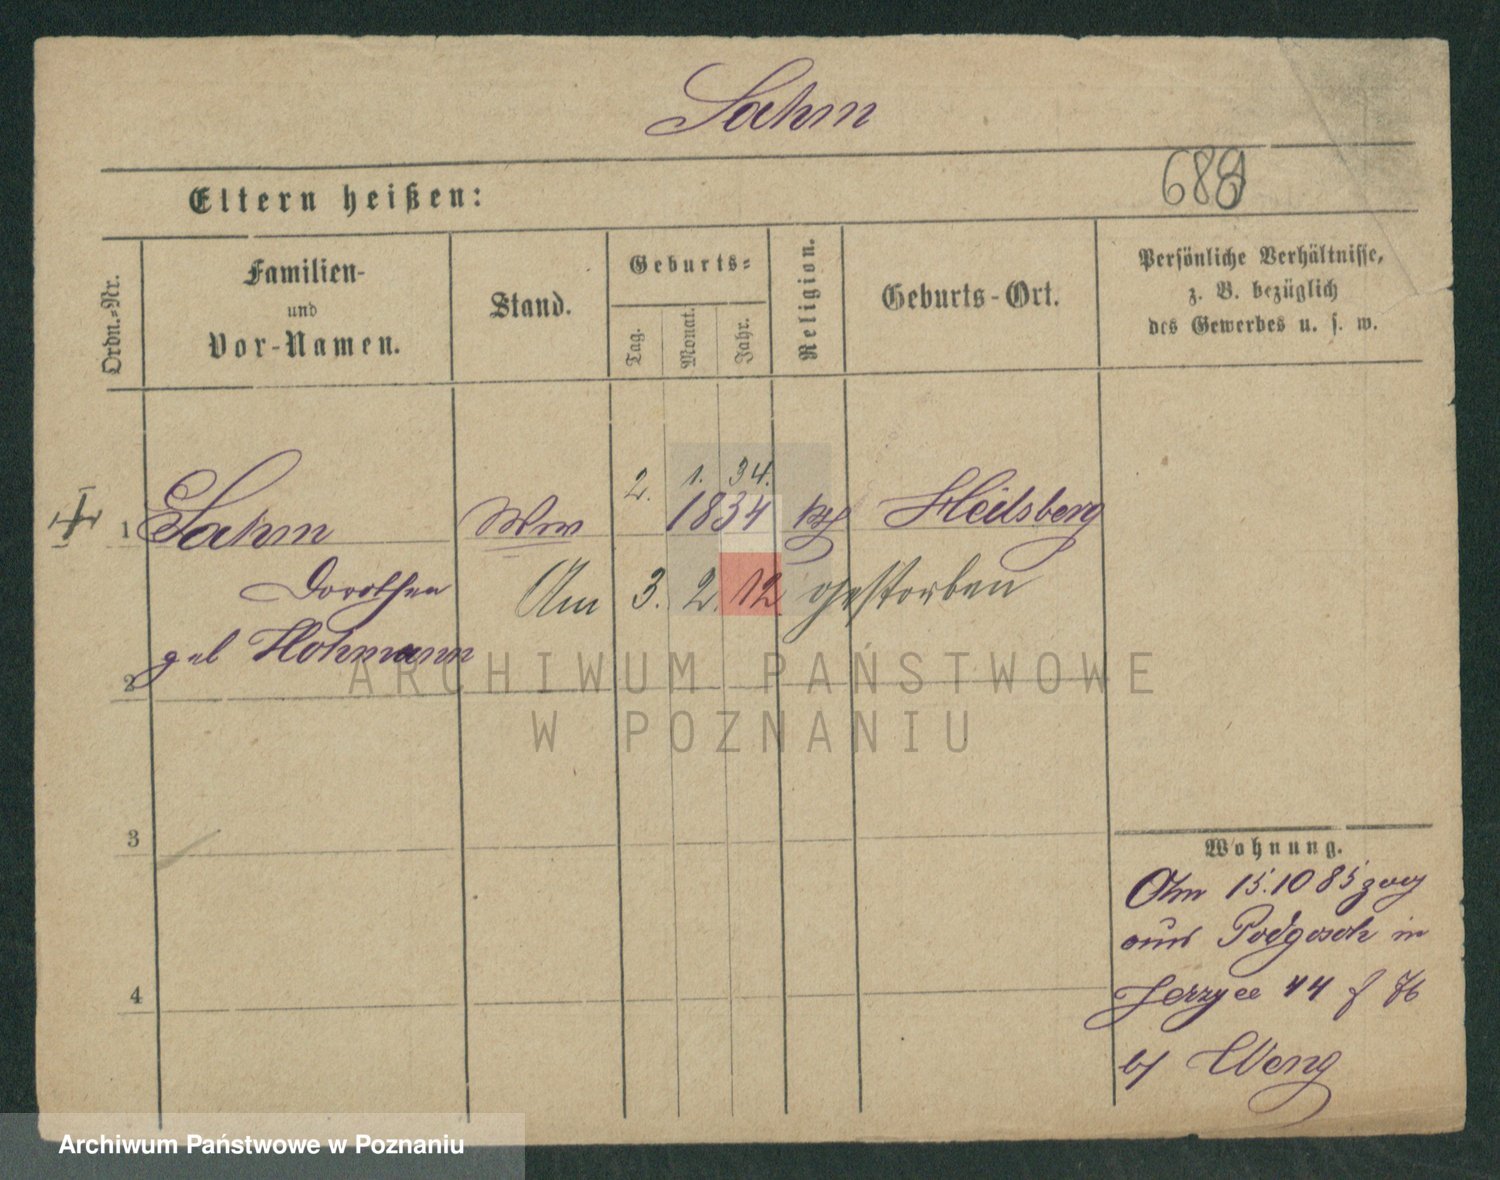 Sahm
Eltern heißen:
688
Ordn.-Nr.
Familien-
und
Vor-Namen.
Stand.
Geburts-
Tag.
Monat.
Jahr.
Religion.
Geburts-Ort.
Persönliche Verhältnisse,
z. B. bezüglich
des Gewerbes u. s. w.
2. 1. 34.
1 Sahm Ww 1834 kth Heilsberg
Dorothea
Am 3. 2. 12. gestorben
geb Hohmann
2
3
4
Wohnung.
Am 15.10 85 zog
aus Podgosch in
Jerzyce 44
b/ Weng
ARCHIWUM PAŃSTWOWE
W POZNANIU
Archiwum Państwowe w Poznaniu